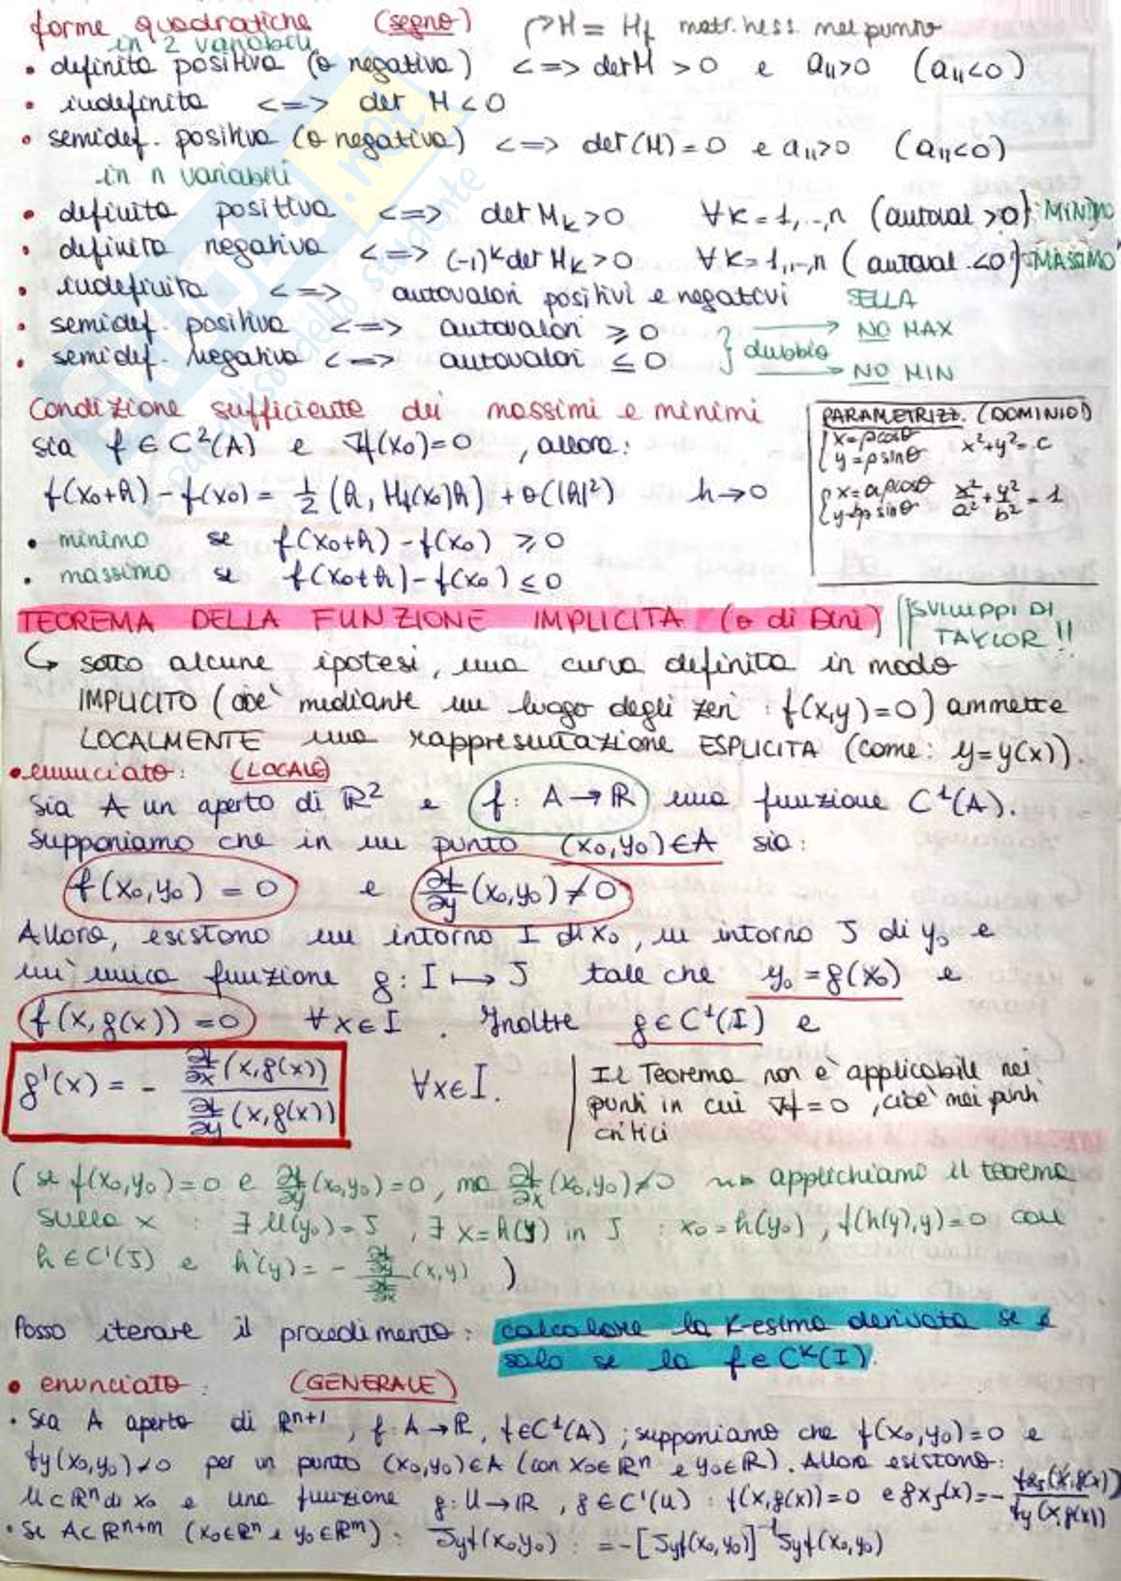 forme quadratiche (segno) ↱ H = Hf matr. hess. nel punto
in 2 variabili
• definita positiva (o negativa) <=> det H > 0 e a₁₁>0 (a₁₁<0)
• indefinita <=> det H < 0
• semidef. positiva (o negativa) <=> det(H) = 0 e a₁₁>0 (a₁₁<0)
in n variabili
• definita positiva <=> det Hk>0 ∀k=1,..,n (autoval >0) MINIMO
• definita negativa <=> (-1)ᵏ det Hk>0 ∀k=1,..,n (autoval. <0) MASSIMO
• indefinita <=> autovalori positivi e negativi SELLA
• semidef. positiva <=> autovalori ⩾ 0 } dubbio → NO MAX
• semidef. negativa <=> autovalori ≤ 0 → NO MIN
Condizione sufficiente dei massimi e minimi
sia f ∈ C²(A) e ∇f(x₀)=0 , allora:
f(x₀+h) - f(x₀) = 1/2 (h, Hf(x₀)h) + o(|h|²) h→0
• minimo se f(x₀+h) - f(x₀) ⩾ 0
• massimo se f(x₀+h) - f(x₀) ≤ 0
PARAMETRIZZ. (DOMINIO)
{x=ρcosθ
y=ρsinθ x²+y²=c
{x=aρcosθ
y=bρsinθ x²/a² + y²/b² = 1
TEOREMA DELLA FUNZIONE IMPLICITA (o di Dini)
SVILUPPI DI
TAYLOR!!
↳ sotto alcune ipotesi, una curva definita in modo
IMPLICITO (cioè mediante un luogo degli zeri : f(x,y)=0) ammette
LOCALMENTE una rappresentazione ESPLICITA (come: y=y(x)).
• enunciato: (LOCALE)
Sia A un aperto di ℝ² e f: A→ℝ una funzione C¹(A).
Supponiamo che in un punto (x₀,y₀)∈A sia:
f(x₀,y₀) = 0 e ∂f/∂y (x₀,y₀) ≠ 0
Allora, esistono un intorno I di x₀, un intorno J di y₀ e
un'unica funzione g: I ↦ J tale che y₀ = g(x₀) e
f(x,g(x)) = 0 ∀x∈I . Inoltre g∈C¹(I) e
g'(x) = - ∂f/∂x (x,g(x)) / ∂f/∂y (x,g(x)) ∀x∈I.
Il Teorema non è applicabile nei
punti in cui ∇f=0 , cioè nei punti
critici
(se f(x₀,y₀)=0 e ∂f/∂y (x₀,y₀)=0, ma ∂f/∂x (x₀,y₀)≠0 ⇝ applichiamo il teorema
sulla x : ∃ U(y₀)=J , ∃ x=h(y) in J : x₀=h(y₀) , f(h(y),y)=0 con
h∈C¹(J) e h'(y) = - ∂f/∂y / ∂f/∂x (x,y) )
Posso iterare il procedimento: calcolare la k-esima derivata se e
solo se la f∈Cᵏ(I).
• enunciato: (GENERALE)
• Sia A aperto di ℝⁿ⁺¹, f: A→ℝ, f∈C¹(A) ; supponiamo che f(x₀,y₀)=0 e
fy(x₀,y₀)≠0 per un punto (x₀,y₀)∈A (con x₀∈ℝⁿ e y₀∈ℝ). Allora esistono:
U⊂ℝⁿ di x₀ e una funzione g: U→ℝ , g∈C¹(U) : f(x,g(x))=0 e gxⱼ(x) = - fxⱼ(x,g(x)) / fy(x,g(x))
• Se A⊂ℝⁿ⁺ᵐ (x₀∈ℝⁿ e y₀∈ℝᵐ) : Jyf(x₀,y₀) : = -[Jyf(x₀,y₀)]⁻¹ Jyf(x₀,y₀)